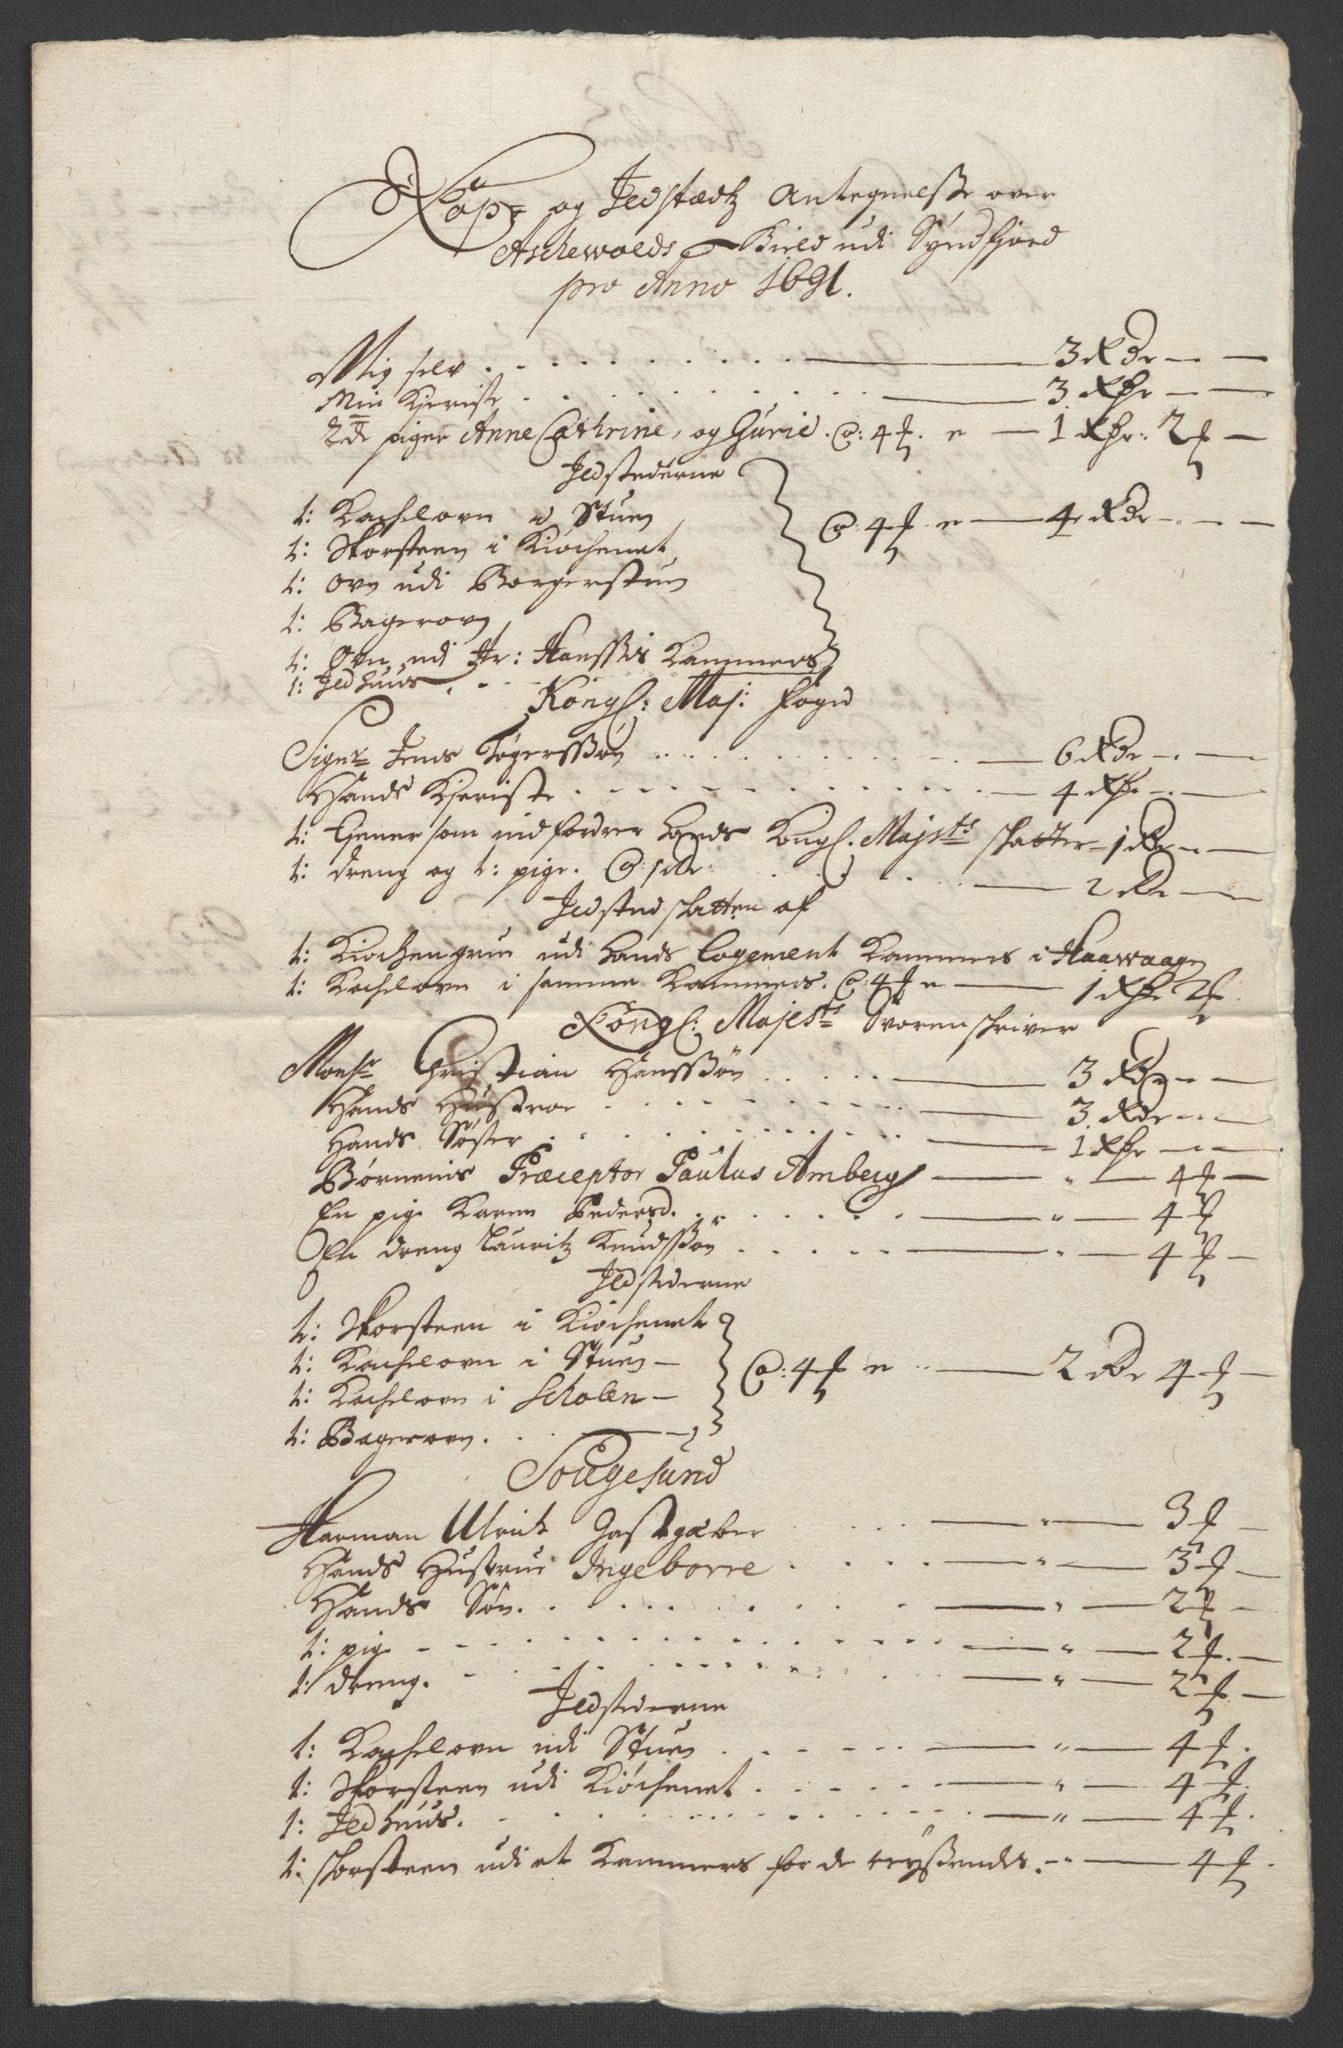 Kop= og Jldstædtz Antegnelsse over
Aschewolds Gield udi Syndfiord
pro Anno 1691.
Mig selv 3 Rdr
Min Kieriste 3 Rdr
2de piger Anne Cathrine, og Gurie. @: 4 ß. 1 Rdr: 2 ß
Jldstederne
1: Kachelovn i Stuen @ 4 ß 4 Rdr
1: Skorsteen i Kiøchenet
1: ovn udi Borgerstuen
1: Bagerovn
1: Ovn udi Hr: Hanssis Kammers
1: Jldhuus
Kongl: Maj: Foged
Signr Jens Tøgerssøn 6 Rdr
Hands Kieriste 4 Rdr
1: Tiener som indfordrer hands Kongl. Majsts skatter 1 Rdr
1: dreng og 1: pige. @ 1 Rdr 2 Rdr
Jldstedskatten af
1: Kiøchengrue udi hands Logement Kammers i Haawaagen
1: Kachelovn i samme Kammers. @: 4 ß 1 Rdr 2 ß
Kongl: Majests Sorenschriver
Monsr Christian Hanssøn 3 Rdr
Hands Hustroe 3 Rdr
Hands Søster 1 Rdr
Børnenis Præceptor Paulus Amberg " 4 ß
En pige Karen Pedersd. " 4 ß
En dreng Lauritz Knudssøn " 4 ß
Jldstederne
1: Skorsteen i Kiøchenet
1: Kachelovn i Stuen @: 4 ß 2 Rdr 4 ß
1: Kachelovn i Scholen
1: Bagerovn.
Sougesund
Harman Ulrich Gastgæber " 3 ß
Hands Hustrue Ingeborre " 3 ß
Hands Søn. " 2 ß
1: pige " 2 ß
1: dreng. " 2 ß
Jldstederne
1: Kachelovn udi Stuen " 4 ß
1: Skorsteen udi Kiøchenet " 4 ß
1: Jldhuus. " 4 ß
1: skorsteen udi et Kammers for de reyssendes. " 4 ß